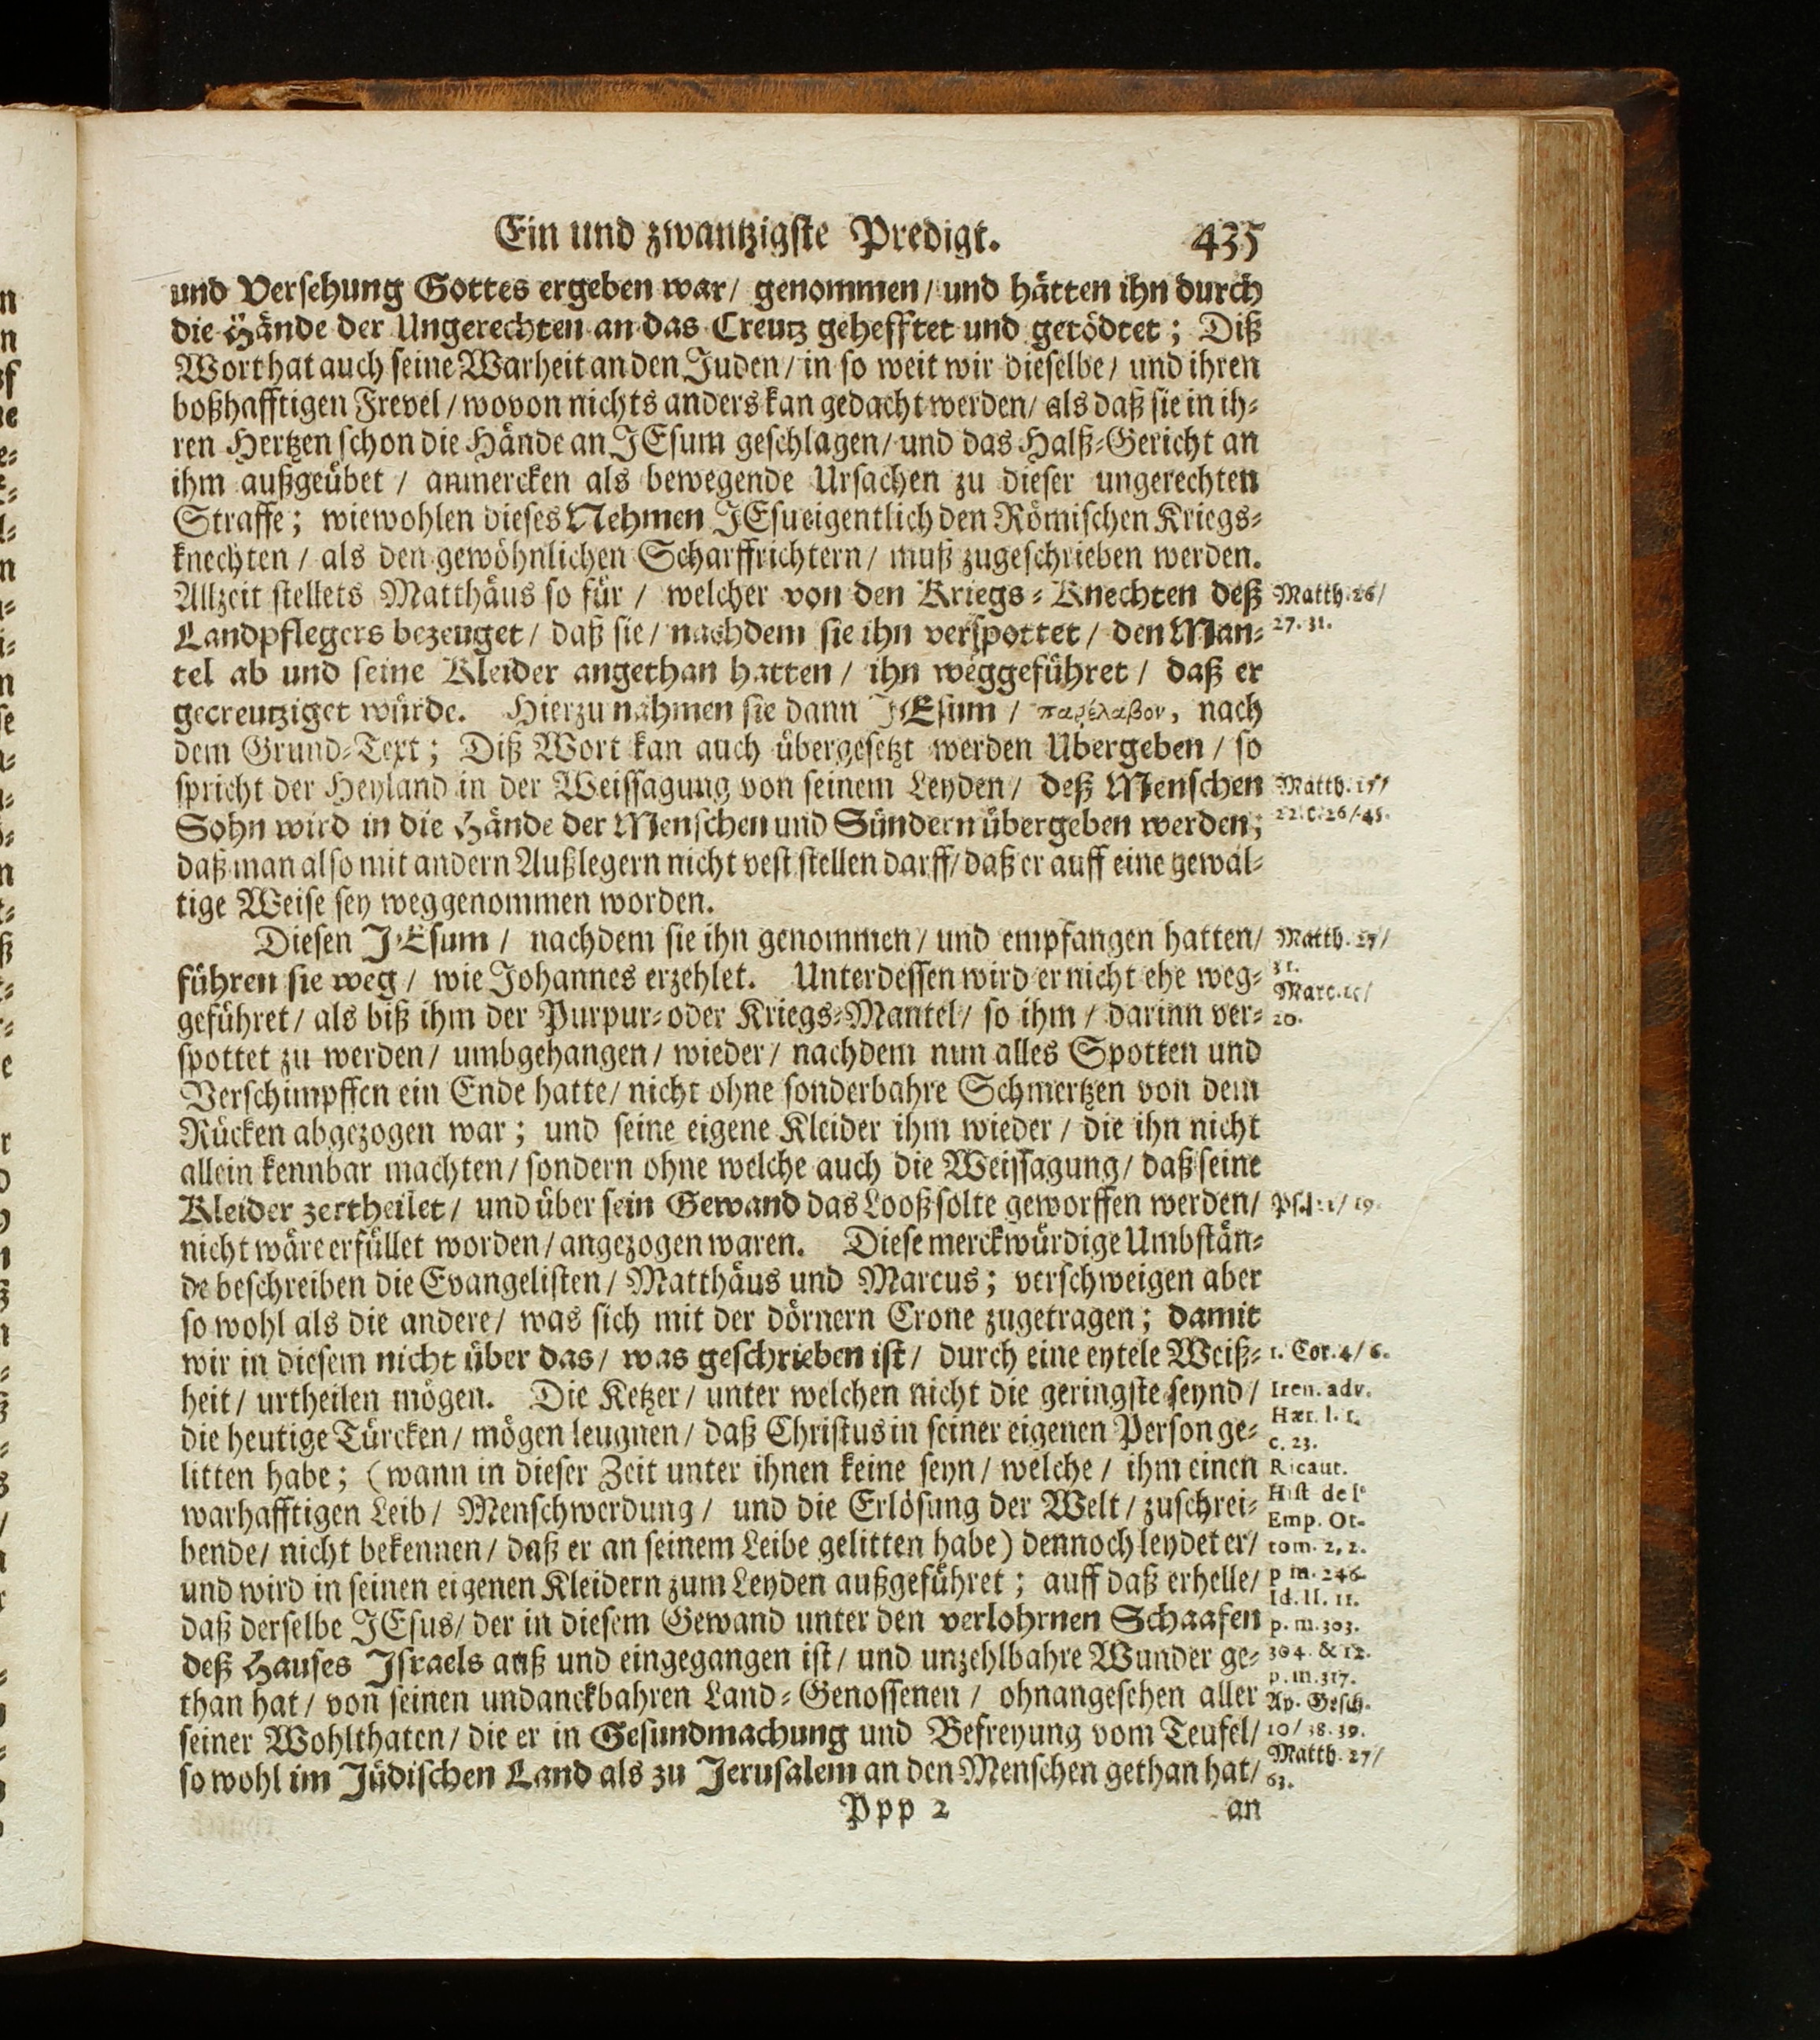 Ein und zwantzigste Predigt. 435
und Versehung Gottes ergeben war/ genommen/ und hätten ihn durch
die Hände der Ungerechten an das Creutz gehefftet und getödtet; Diß
Wort hat auch seine Warheit an den Juden/ in so weit wir dieselbe/ und ihren
boßhafftigen Frevel/ wovon nichts anders kan gedacht werden/ als daß sie in ih-
ren Hertzen schon die Hände an JEsum geschlagen/ und das Halß-Gericht an
ihm außgeübet / anmercken als bewegende Ursachen zu dieser ungerechten
Straffe; wiewohlen dieses Nehmen JEsu eigentlich den Römischen Kriegs-
knechten / als den gewöhnlichen Scharffrichtern/ muß zugeschrieben werden.
Allzeit stellets Matthäus so für / welcher von den Kriegs-Knechten deß
Matth. 26/
Landpflegers bezeuget/ daß sie/ nachdem sie ihn verspottet/ den Man-
27. 31.
tel ab und seine Kleider angethan hatten/ ihn weggeführet/ daß er
gecreutziget würde. Hierzu nahmen sie dann JEsum / παρέλαβον, nach
dem Grund-Text; Diß Wort kan auch übergesetzt werden Ubergeben / so
spricht der Heyland in der Weissagung von seinem Leyden/ deß Menschen
Sohn wird in die Hände der Menschen und Sündern übergeben werden;
22. c. 26/45.
daß man also mit andern Außlegern nicht vest stellen darff/ daß er auff eine gewal-
tige Weise sey weggenommen worden.
Diesen JEsum / nachdem sie ihn genommen/ und empfangen hatten/
Matth. 27/
führen sie weg/ wie Johannes erzehlet. Unterdessen wird er nicht ehe weg-
31.
Marc. 15/
geführet/ als biß ihm der Purpur- oder Kriegs-Mantel/ so ihm / darinn ver-
20.
spottet zu werden/ umbgehangen/ wieder/ nachdem nun alles Spotten und
Verschimpffen ein Ende hatte/ nicht ohne sonderbahre Schmertzen von dem
Rücken abgezogen war; und seine eigene Kleider ihm wieder / die ihn nicht
allein kennbar machten/ sondern ohne welche auch die Weissagung/ daß seine
Kleider zertheilet/ und über sein Gewand das Looß solte geworffen werden/
nicht wäre erfüllet worden/ angezogen waren. Diese merckwürdige Umbstän-
de beschreiben die Evangelisten/ Matthäus und Marcus; verschweigen aber
so wohl als die andere/ was sich mit der dörnern Crone zugetragen; damit
wir in diesem nicht über das/ was geschrieben ist/ durch eine eytele Weiß-
1. Cor. 4/ 6.
heit/ urtheilen mögen. Die Ketzer/ unter welchen nicht die geringste seynd/
Iren. adv.
Hær. l. 1.
die heutige Türcken/ mögen leugnen/ daß Christus in seiner eigenen Person ge-
c. 23.
litten habe; (wann in dieser Zeit unter ihnen keine seyn/ welche/ ihm einen
Ricaut.
warhafftigen Leib/ Menschwerdung/ und die Erlösung der Welt/ zuschrei-
Hist de l'
Emp. Ot-
bende/ nicht bekennen/ daß er an seinem Leibe gelitten habe) dennoch leydet er/
tom. 2, 2.
und wird in seinen eigenen Kleidern zum Leyden außgeführet; auff daß erhelle/
p m. 246.
Id. ll. 11.
daß derselbe JEsus/ der in diesem Gewand unter den verlohrnen Schaafen
p. m. 303.
deß Hauses Israels auß und eingegangen ist/ und unzehlbahre Wunder ge-
304. & 12.
p. m. 317.
than hat/ von seinen undanckbahren Land-Genossenen / ohnangesehen aller
Ap. Gesch.
seiner Wohlthaten/ die er in Gesundmachung und Befreyung vom Teufel/
10/ 38. 39.
so wohl im Jüdischen Land als zu Jerusalem an den Menschen gethan hat/
Matth. 27/
63.
Ppp 2 an